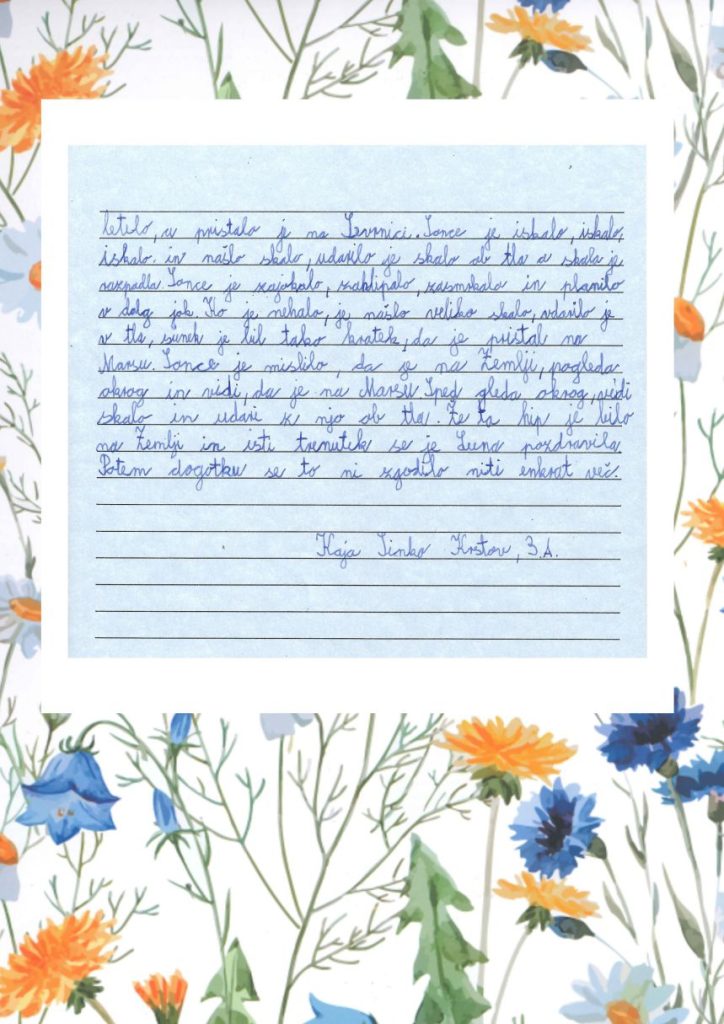 letelo, a pristalo je na Severnici. Sonce je iskalo, iskalo,
iskalo in našlo skalo, udarilo je skalo ob tla a skala je
razpadla. Sonce je zajokalo, zahlipalo, zasmrkalo in planilo
v dolg jok. Ko je nehalo, je našlo veliko skalo, udarilo je
v tla, sunek je bil tako kratek, da je pristal na
Marsu. Sonce je mislilo, da je na Zemlji, pogleda
okrog in vidi, da je na Marsu. Sped gleda okrog, vidi
skalo in udari z njo ob tla. Že ta hip je bilo
na Zemlji in isti trenutek se je Luna pozdravila.
Potem dogotku se to ni zgodilo niti enkrat več.
Kaja Sinko Krstov, 3.A.